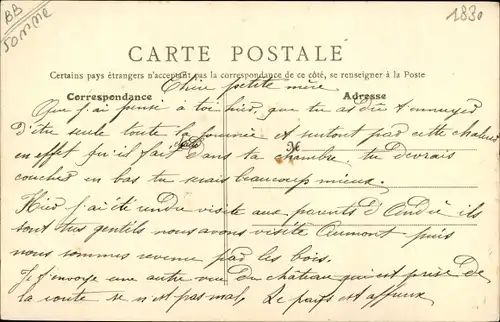 BB
SOMME
1830
CARTE POSTALE
Certains pays étrangers n'acceptant pas la correspondance de ce côté, se renseigner à la Poste
Chère petite mère
Correspondance
Adresse
Que j'ai pensé à toi hier, que tu as dû t'ennuyer
d'être seule toute la journée et surtout par cette chaleur
en effet qu'il fait dans ta chambre, tu devrais
coucher en bas tu serais beaucoup mieux.
M
Hier j'ai été rendre visite aux parents d'André ils
sont très gentils nous avons visité Aumont puis
nous sommes revenu par les bois.
Je t'envoye une autre vue du château qui est prise de
la route ce n'est pas mal. Le pays est affreux